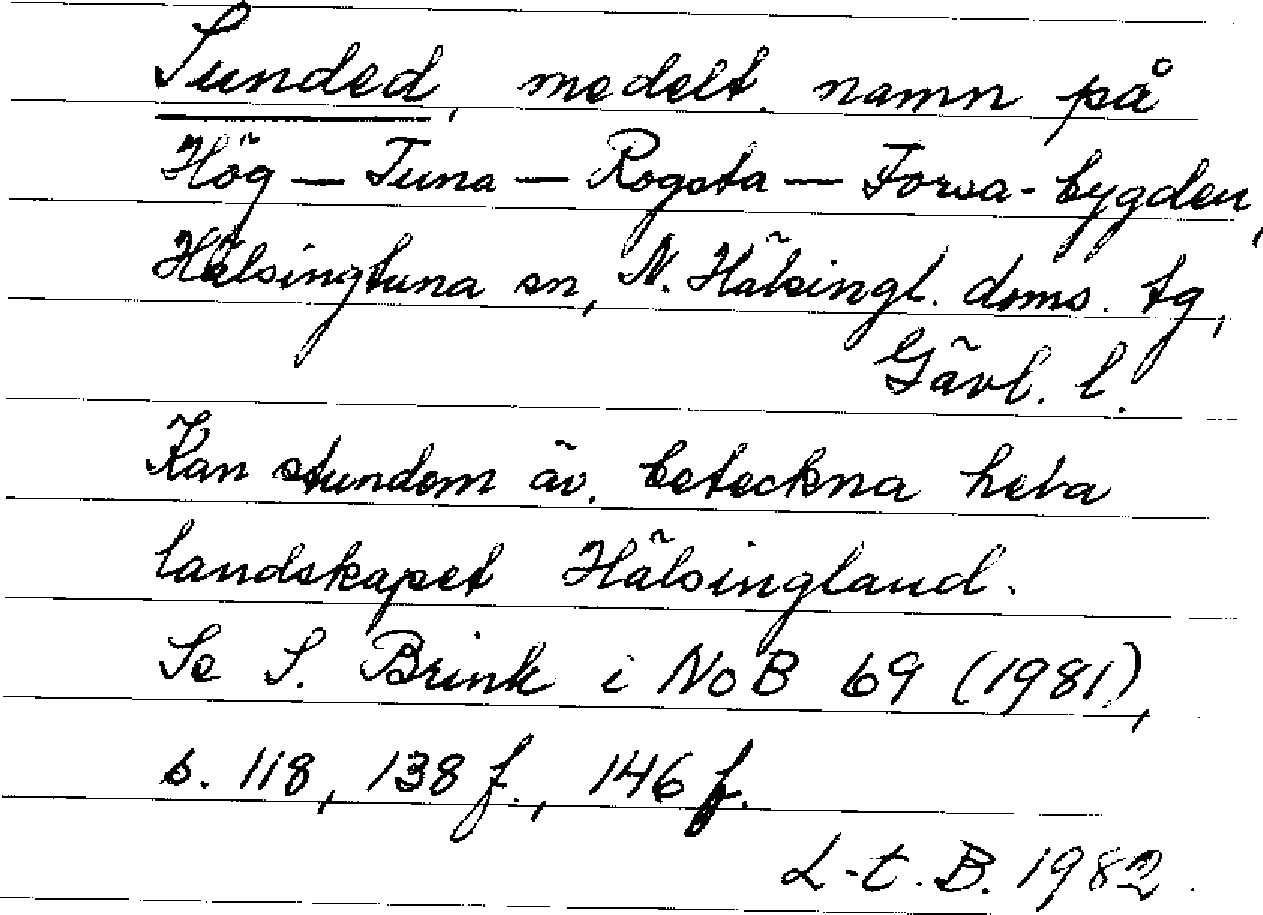 Sunded, medelt. namn på
Hög — Tuna — Rogsta — Forsa-bygden,
Hälsingtuna sn, N. Hälsingl. doms. tg,
Gävl. l.
Kan stundom äv. beteckna hela
landskapet Hälsingland.
Se S. Brink i NoB 69 (1981),
s. 118, 138 f., 146 f.
L-t. B. 1982.